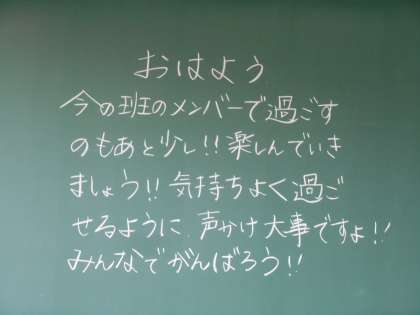 おはよう
今の班のメンバーで過ごす
のもあと少し!!楽しんでいき
ましょう!!気持ちよく過ご
せるように、声かけ大事ですよ!!
みんなでがんばろう!!